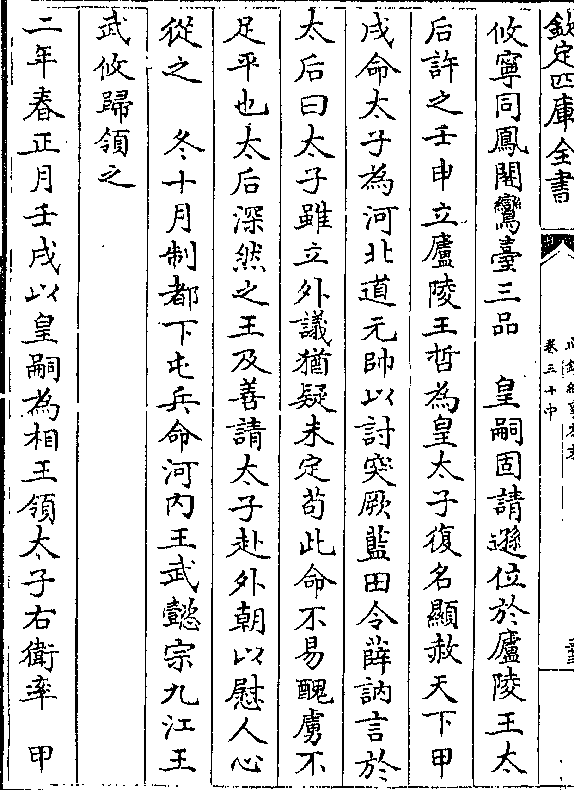 欽定四庫全書
卷三十中
攸寧同鳳閣鸞臺三品　皇嗣固請遜位於廬陵王太
后許之壬申立廬陵王哲為皇太子復名顯赦天下甲
戌命太子為河北道元帥以討突厥藍田令薛訥言於
太后曰太子雖立外議猶疑未定茍此命不易醜虜不
足平也太后深然之王及善請太子赴外朝以慰人心
從之　冬十月制都下屯兵命河内王武懿宗九江王
武攸歸領之
二年春正月壬戌以皇嗣為相王領太子右衛率　甲